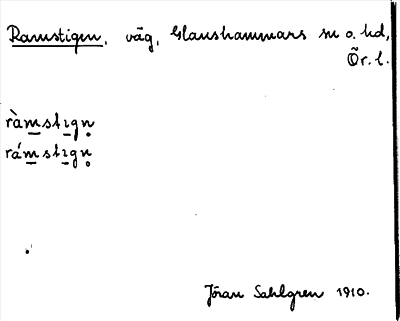 Ramstigen, väg, Glanshammars sn o. hd,
Ör. l.
ràm̲stı̲gn̥
rám̲stı̲gn̥
Jöran Sahlgren 1910.